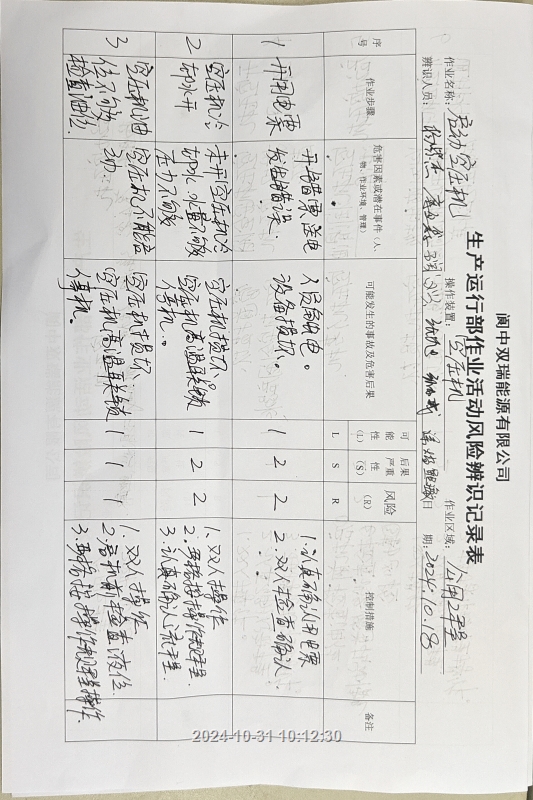 阆中双瑞能源有限公司
生产运行部作业活动风险辨识记录表
作业名称：启动空压机 操作装置：空压机 作业区域：公用工程
辨识人员： 日期：2024.10.18
序号 作业步骤 危害因素或潜在事件（人、物、作业环境、管理） 可能发生的事故及危害后果 可能性（L） 后果严重性（S） 风险（R） 控制措施 备注
L S R
1 开用电票 开错票送电发生错误. 人员触电。设备损坏。 1 2 2 1.认真确认用电票
2.双人检查确认.
2 空压机冷却水开 未开空压机冷却水,水量不够压力不够 空压机损坏空压机高温联锁停机。 1 2 2 1.双人操作
2.严格按操作规程
3.认真确认流程.
3 空压机油位不够检查油位. 空压机不能启动. 空压机损坏.空压机高温联锁停机。 1 1 1 1.双人操作
2.启机前检查液位.
3.严格按操作规程操作.
2024-10-31 10:12:30